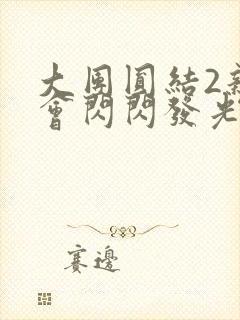 大團圓結2
會閃閃發光
賽邊